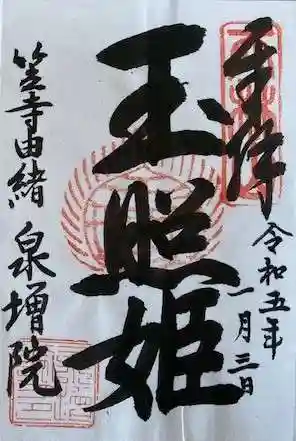 奉拝
令和五年
一月三日
玉照姫
笠寺由緒 泉増院